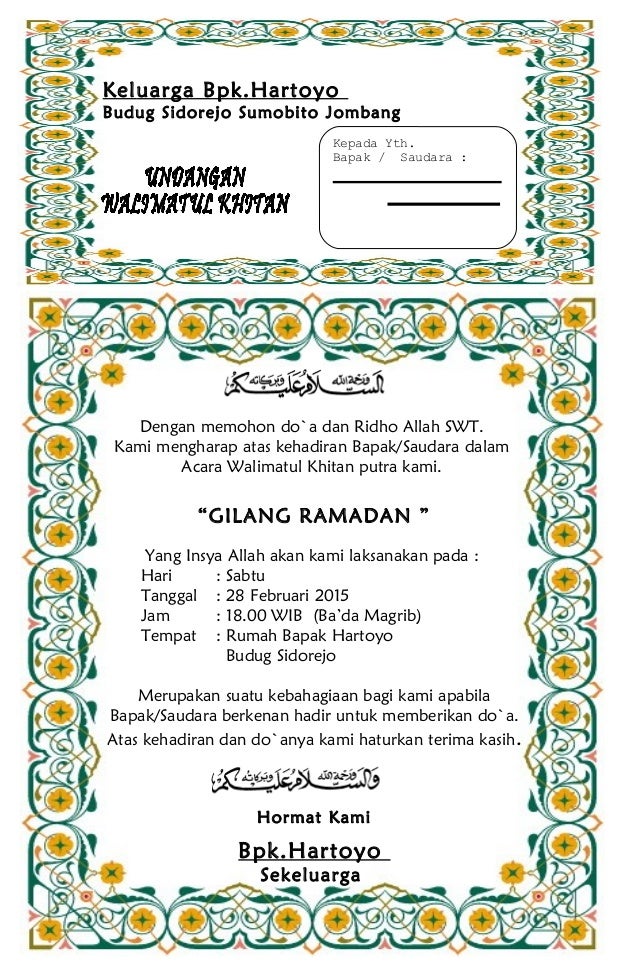 Keluarga Bpk.Hartoyo
Budug Sidorejo Sumobito Jombang
Kepada Yth.
Bapak / Saudara :
UNDANGAN
WALIMATUL KHITAN
السلام عليكم ورحمة الله وبركاته
Dengan memohon do`a dan Ridho Allah SWT.
Kami mengharap atas kehadiran Bapak/Saudara dalam
Acara Walimatul Khitan putra kami.
“GILANG RAMADAN ”
Yang Insya Allah akan kami laksanakan pada :
Hari : Sabtu
Tanggal : 28 Februari 2015
Jam : 18.00 WIB (Ba’da Magrib)
Tempat : Rumah Bapak Hartoyo
Budug Sidorejo
Merupakan suatu kebahagiaan bagi kami apabila
Bapak/Saudara berkenan hadir untuk memberikan do`a.
Atas kehadiran dan do`anya kami haturkan terima kasih.
والسلام عليكم ورحمة الله وبركاته
Hormat Kami
Bpk.Hartoyo
Sekeluarga